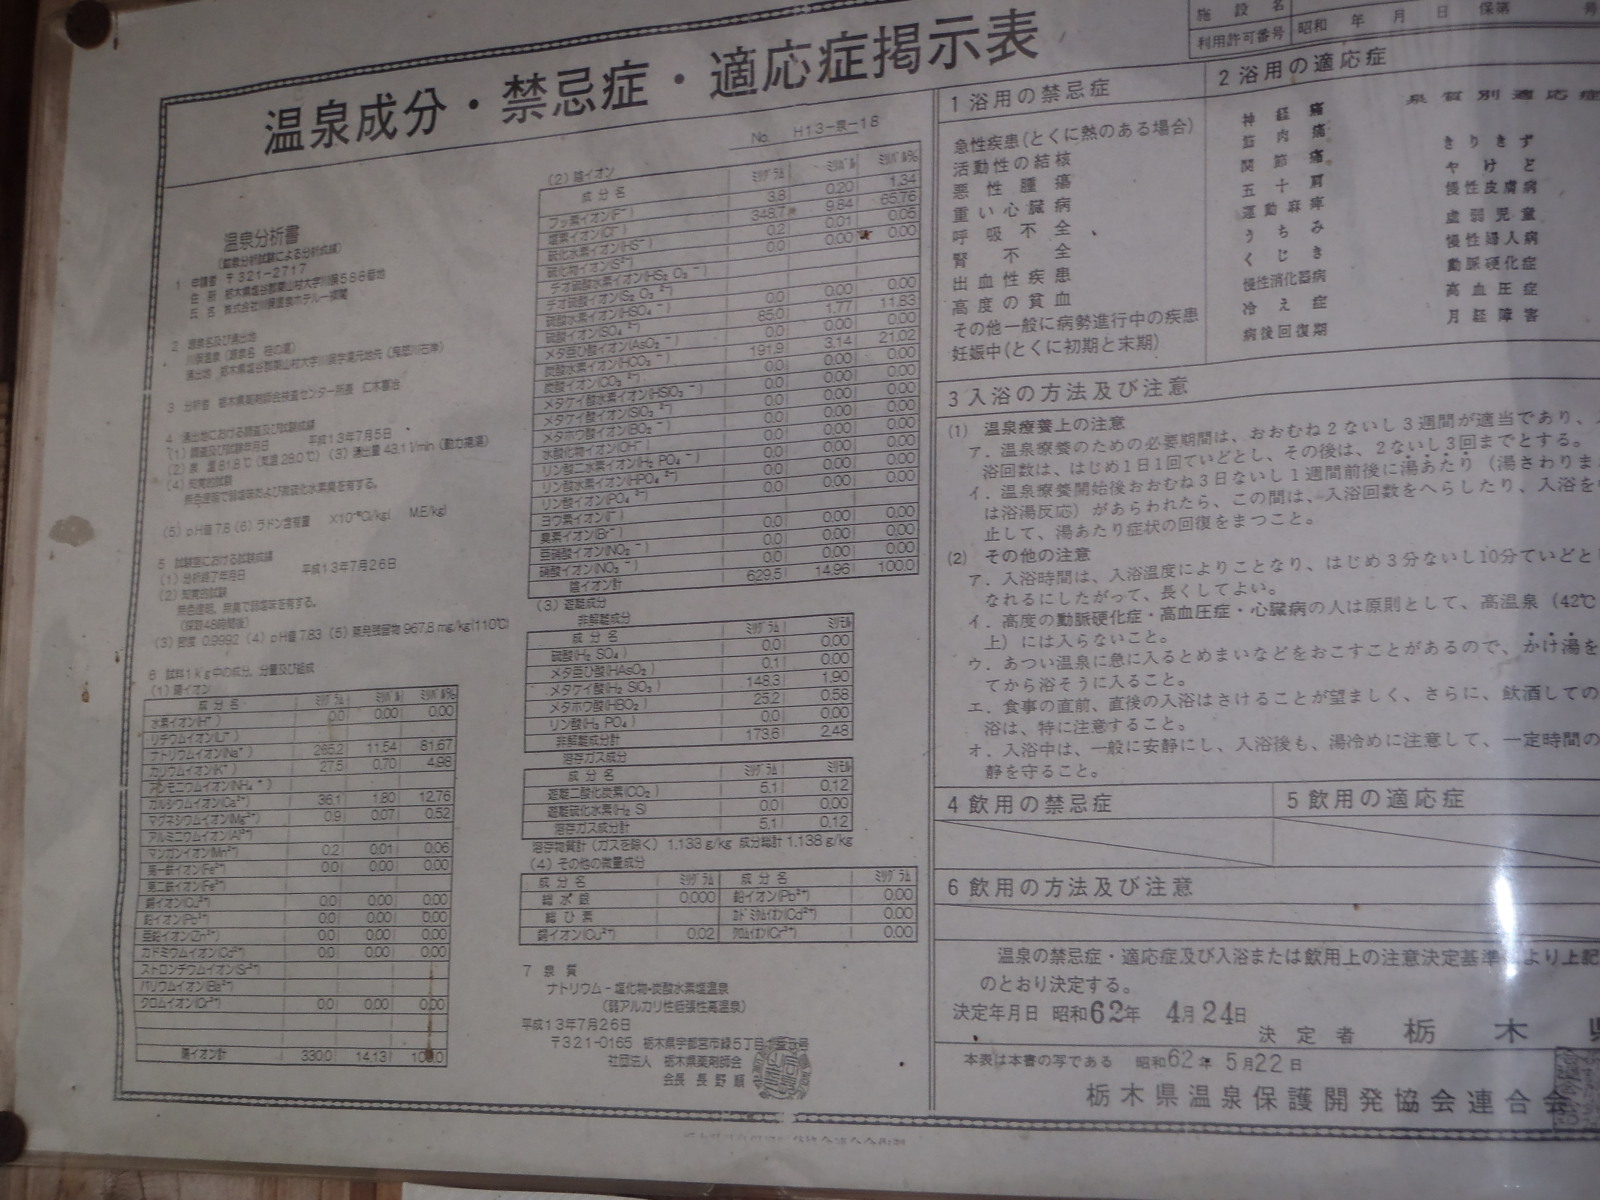 温泉成分・禁忌症・適応症掲示表
施設名
利用許可番号 昭和 年 月 日 保第 号
No. H13-泉-18
温泉分析書
(鉱泉分析試験による分析成績)
1 申請者 〒321-2717
住所 栃木県塩谷郡栗山村大字川俣588番地
氏名 株式会社川俣温泉ホテル一柳閣
2 源泉名及び湧出地
湧出地 栃木県塩谷郡栗山村大字川俣字湯元地先(鬼怒川右岸)
3 分析者 栃木県薬剤師会検査センター所長
4 湧出地における調査及び試験成績
(1)調査及び試験年月日 平成13年7月5日
(2)泉温 81.8℃(気温 28.0℃) (3)湧出量 43.1 l/min(動力揚湯)
(4)知覚的試験
無色澄明で弱塩味および微硫化水素臭を有する。
(5)pH値 7.8 (6)ラドン含有量 Ci/kg( M.E/kg)
5 試験室における試験成績
(1)分析終了年月日 平成13年7月26日
(2)知覚的試験
無色澄明、無臭で弱塩味を有する。
(採取48時間後)
(3)密度 0.9992 (4)pH値 7.83 (5)蒸発残留物 967.8 mg/kg(110℃)
6 試料1kg中の成分、分量及び組成
(1)陽イオン
成分名 ミリグラム ミリバル ミリバル%
水素イオン(H⁺) 0.0 0.00 0.00
リチウムイオン(Li⁺)
ナトリウムイオン(Na⁺) 265.2 11.54 81.67
カリウムイオン(K⁺) 27.5 0.70 4.98
アンモニウムイオン(NH₄⁺)
カルシウムイオン(Ca²⁺) 36.1 1.80 12.76
マグネシウムイオン(Mg²⁺) 0.9 0.07 0.52
アルミニウムイオン(Al³⁺)
マンガンイオン(Mn²⁺) 0.2 0.01 0.06
第一鉄イオン(Fe²⁺) 0.0 0.00 0.00
第二鉄イオン
銅イオン(Cu²⁺) 0.0 0.00 0.00
鉛イオン(Pb²⁺) 0.0 0.00 0.00
亜鉛イオン(Zn²⁺) 0.0 0.00 0.00
カドミウムイオン(Cd²⁺) 0.0 0.00 0.00
ストロンチウムイオン(Sr²⁺)
バリウムイオン(Ba²⁺)
クロムイオン 0.0 0.00 0.00
陽イオン計 330.0 14.13 100.0
(2)陰イオン
成分名 ミリグラム ミリバル ミリバル%
フッ素イオン(F⁻) 3.8 0.20 1.34
塩素イオン(Cl⁻) 348.7 9.84 65.76
硫化水素イオン(HS⁻) 0.2 0.01 0.05
硫化物イオン(S²⁻) 0.00 0.00
チオ硫酸水素イオン(HS₂O₃⁻)
チオ硫酸イオン(S₂O₃²⁻)
硫酸水素イオン(HSO₄⁻) 0.0 0.00 0.00
硫酸イオン(SO₄²⁻) 85.0 1.77 11.83
メタ亜ひ酸イオン(AsO₂⁻) 0.0 0.00 0.00
炭酸水素イオン(HCO₃⁻) 191.9 3.14 21.02
炭酸イオン(CO₃²⁻) 0.0 0.00 0.00
メタケイ酸水素イオン(HSiO₃⁻) 0.0 0.00 0.00
メタケイ酸イオン(SiO₃²⁻) 0.0 0.00 0.00
メタホウ酸イオン(BO₂⁻) 0.0 0.00 0.00
水酸化物イオン(OH⁻) 0.0 0.00 0.00
リン酸二水素イオン(H₂PO₄⁻) 0.0 0.00 0.00
リン酸水素イオン(HPO₄²⁻) 0.0 0.00 0.00
リン酸イオン(PO₄³⁻) 0.0 0.00 0.00
ヨウ素イオン(I⁻)
臭素イオン(Br⁻) 0.0 0.00 0.00
亜硝酸イオン(NO₂⁻) 0.0 0.00 0.00
硝酸イオン(NO₃⁻) 0.0 0.00 0.00
陰イオン計 629.5 14.96 100.0
(3)遊離成分
非解離成分
成分名 ミリグラム ミリモル
硫酸(H₂SO₄) 0.0 0.00
メタ亜ひ酸(HAsO₂) 0.1 0.00
メタケイ酸(H₂SiO₃) 148.3 1.90
メタホウ酸(HBO₂) 25.2 0.58
リン酸(H₃PO₄) 0.0 0.00
非解離成分計 173.6 2.48
溶存ガス成分
成分名 ミリグラム ミリモル
遊離二酸化炭素(CO₂) 5.1 0.12
遊離硫化水素(H₂S) 0.0 0.00
溶存ガス成分計 5.1 0.12
溶存物質計(ガスを除く) 1.133 g/kg 成分総計 1.138 g/kg
(4)その他の微量成分
成分名 ミリグラム 成分名 ミリグラム
総水銀 0.000 鉛イオン(Pb²⁺) 0.00
総ひ素 カドミウムイオン(Cd²⁺) 0.00
銅イオン(Cu²⁺) 0.02 クロムイオン 0.00
7 泉質
ナトリウム-塩化物・炭酸水素塩温泉
(弱アルカリ性低張性高温泉)
平成13年7月26日
〒321-0165 栃木県宇都宮市緑5丁目
社団法人 栃木県薬剤師会
会長 長野順
1 浴用の禁忌症
急性疾患(とくに熱のある場合)
活動性の結核
悪性腫瘍
重い心臓病
呼吸不全、
腎不全
出血性疾患
高度の貧血
その他一般に病勢進行中の疾患
妊娠中(とくに初期と末期)
2 浴用の適応症
神経痛
筋肉痛
関節痛
五十肩
運動麻痺
うちみ
くじき
慢性消化器病
冷え症
病後回復期
泉質別適応症
きりきず
やけど
慢性皮膚病
虚弱児童
慢性婦人病
動脈硬化症
高血圧症
月経障害
3 入浴の方法及び注意
(1) 温泉療養上の注意
ア.温泉療養のための必要期間は、おおむね2ないし3週間が適当であり、
浴回数は、はじめ1日1回ていどとし、その後は、2ないし3回までとする。
イ.温泉療養開始後おおむね3日ないし1週間前後に湯あたり(湯さわりま
は浴湯反応)があらわれたら、この間は、入浴回数をへらしたり、入浴を
止して、湯あたり症状の回復をまつこと。
(2) その他の注意
ア.入浴時間は、入浴温度によりことなり、はじめ3分ないし10分ていどと
なれるにしたがって、長くしてよい。
イ.高度の動脈硬化症・高血圧症・心臓病の人は原則として、高温泉(42℃
上)には入らないこと。
ウ.あつい温泉に急に入るとめまいなどをおこすことがあるので、かけ湯を
てから浴そうに入ること。
エ.食事の直前、直後の入浴はさけることが望ましく、さらに、飲酒しての
浴は、特に注意すること。
オ.入浴中は、一般に安静にし、入浴後も、湯冷めに注意して、一定時間の
静を守ること。
4 飲用の禁忌症
5 飲用の適応症
6 飲用の方法及び注意
温泉の禁忌症・適応症及び入浴または飲用上の注意決定基準により上記
のとおり決定する。
決定年月日 昭和62年 4月24日
決定者 栃木県
本表は本書の写である 昭和62年 5月22日
栃木県温泉保護開発協会連合会